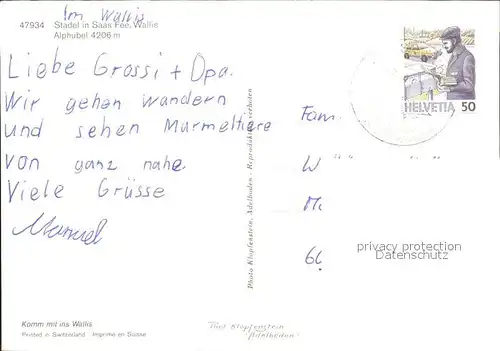 Im Wallis
47934 Stadel in Saas Fee, Wallis
Alphubel 4206 m
Liebe Grossi + Opa.
Wir gehen wandern
und sehen Murmeltiere
von ganz nahe.
Viele Grüsse
Manuel
Komm mit ins Wallis
Printed in Switzerland Imprimé en Suisse
Photo Klopfenstein, Adelboden - Reproduktion verboten
HELVETIA 50
Fam.
W
M
66
privacy protection
Datenschutz
Thos Klopfenstein
"Adelboden"